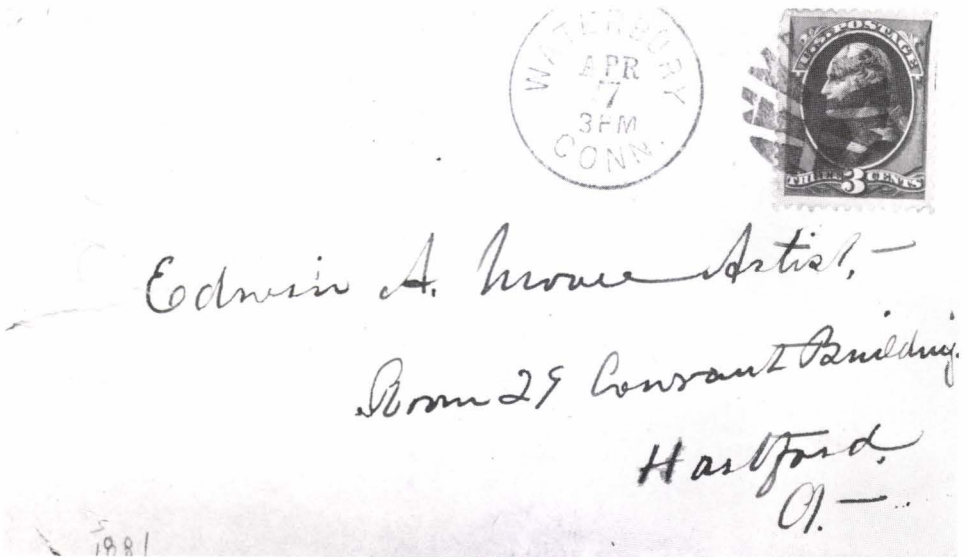 WATERBURY
APR
17
3PM
CONN.
U.S. POSTAGE
THREE 3 CENTS
Edwin A. Moore Artist,—
Room 29 Conrant Building.
Hartford,
Ct.—
1881